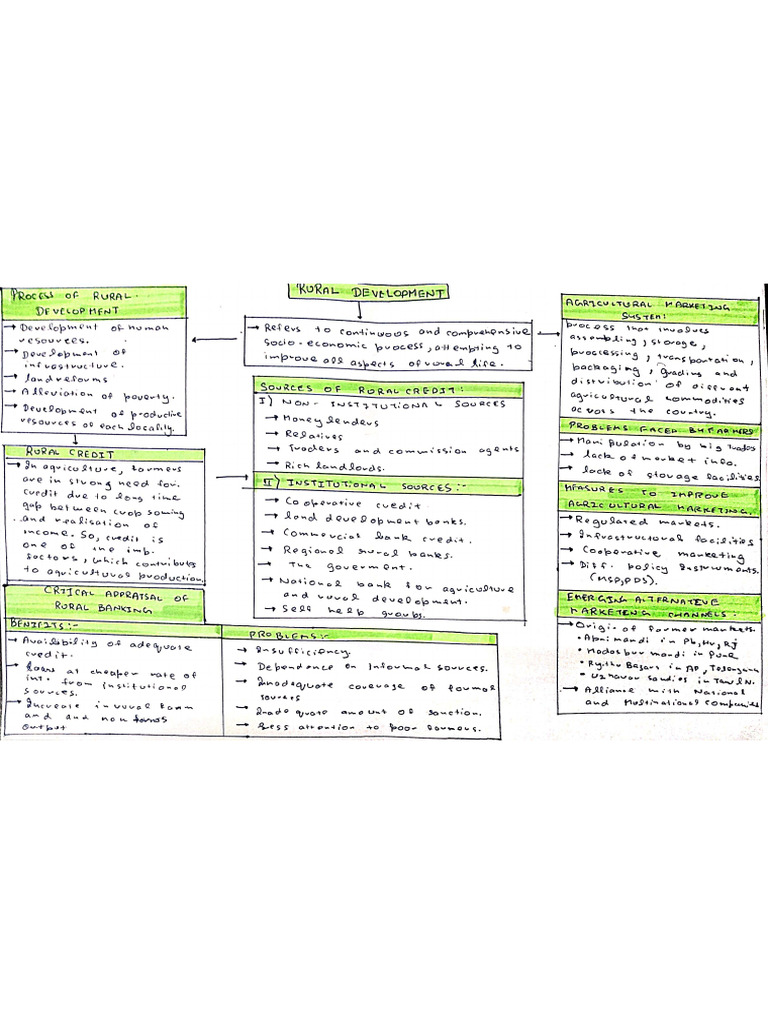 RURAL DEVELOPMENT
→ Refers to continuous and comprehensive
socio-economic process, attempting to
improve all aspects of rural life.
PROCESS OF RURAL
DEVELOPMENT
→ Development of human
resources.
→ Development of
infrastructure.
→ landreforms
→ Alleviation of poverty.
→ Development of productive
resources of each locality.
RURAL CREDIT
→ In agriculture, farmers
are in strong need for
credit due to long time
gap between crop sowing
and realisation of
income. So, credit is
one of the imp.
factors, which contributes
to agricultural production.
SOURCES OF RURAL CREDIT:
I) NON-INSTITUTIONAL SOURCES
→ Money lenders
→ Relatives
→ Traders and commission agents
→ Rich landlords.
II) INSTITUTIONAL SOURCES:-
→ Cooperative credit.
→ land development banks.
→ Commercial bank credit.
→ Regional rural banks.
→ The goverment.
→ National bank for agriculture
and rural development.
→ Self help groups.
CRITICAL APPRAISAL OF
RURAL BANKING
BENIFITS:-
→ Availibility of adequate
credit.
→ loans at cheaper rate of
int. from institutional
sources.
→ Increase in rural farm
and and non farms
output
PROBLEMS:-
→ Insufficiency.
→ Dependence on Informal sources.
→ Inadequate coverage of formal
sources
→ Inadequate amount of sanction.
→ less attention to poor farmers.
AGRICULTURAL MARKETING
SYSTEM:
process that involves
assembling, storage,
processing, transportation,
packaging, grading and
distribution of different
agricultural commodities
across the country.
PROBLEMS FACED BY FARMERS
→ Manipulation by big traders
→ lack of market info.
→ lack of storage facilities
MEASURES TO IMPROVE
AGRICULTURAL MARKETING.
→ Regulated markets.
→ Infrastructural facilities
→ Cooperative marketing
→ Diff. policy instruments.
(MSP, PDS).
EMERGING ALTERNATIVE
MARKETING CHANNELS:
→ Origin of farmer markets.
• Apni mandi in Pb, Hr, Rj
• Hadasbur mandi in Pune
• Rythu Bazars in AP, Telangana
• Uzhavar sandies in Tamil N.
→ Alliance with National
and Multinational companies